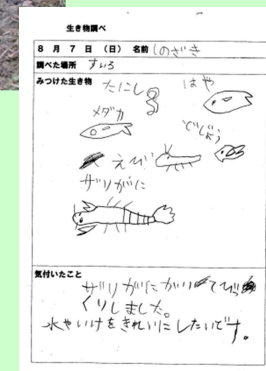 生き物調べ
8 月 7 日 (日) 名前 しのざき
調べた場所 すいろ
みつけた生き物
たにし はや
メダカ
どじょう
えび
ザリがに
気付いたこと
ザリがにが てびっ
くりしました。
水やいけをきれいにしたいです。